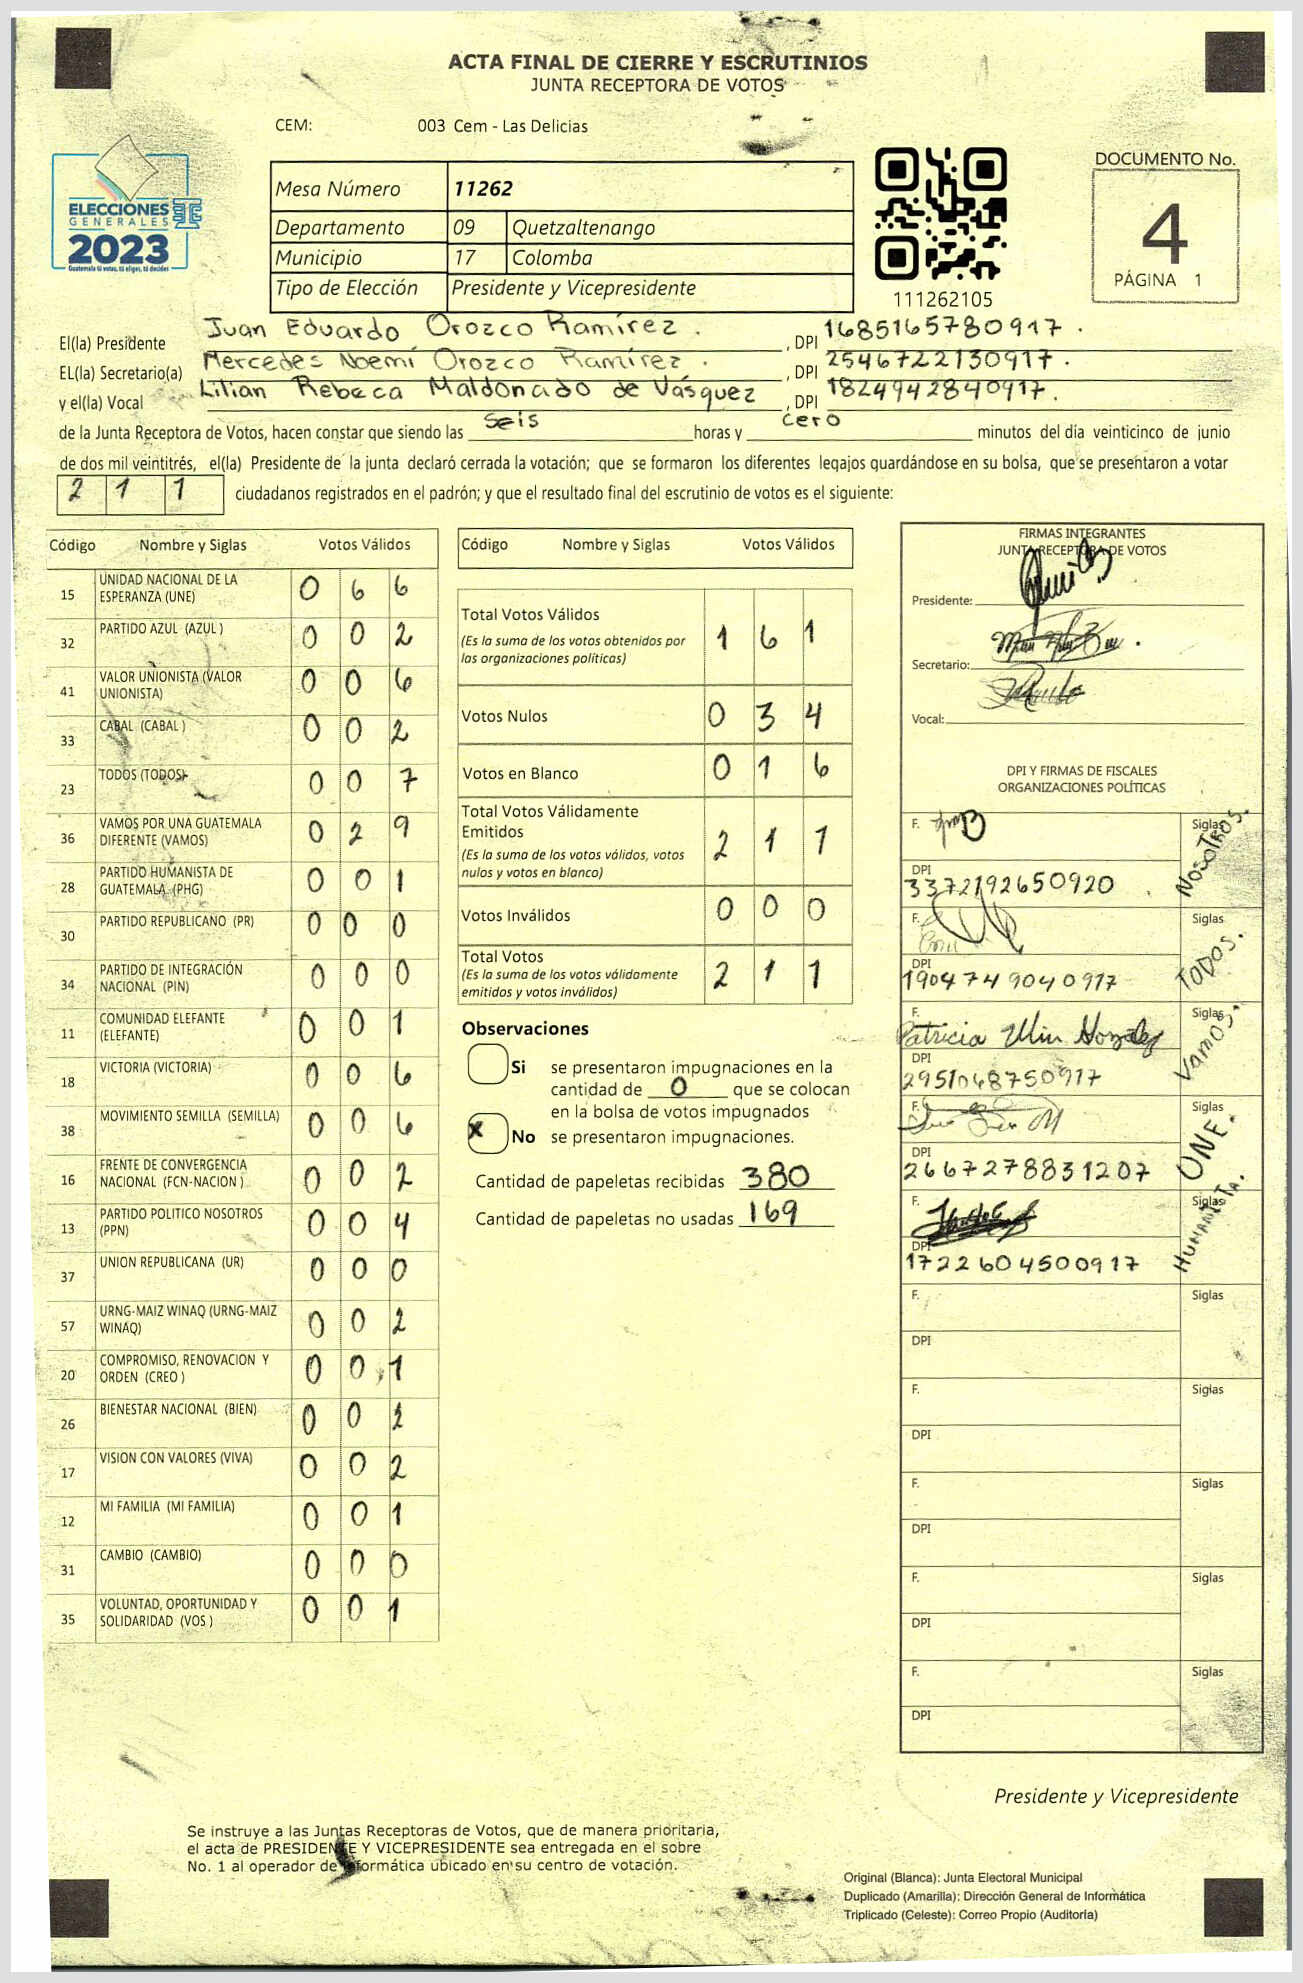 ACTA FINAL DE CIERRE Y ESCRUTINIOS
JUNTA RECEPTORA DE VOTOS
CEM: 003 Cem - Las Delicias
ELECCIONES
GENERALES
2023
Guatemala tú votas, tú eliges, tú decides
Mesa Número 11262
Departamento 09 Quetzaltenango
Municipio 17 Colomba
Tipo de Elección Presidente y Vicepresidente
111262105
DOCUMENTO No.
4
PÁGINA 1
El(la) Presidente Juan Eduardo Orozco Ramírez. , DPI 1685165780917.
EL(la) Secretario(a) Mercedes Noemí Orozco Ramírez. , DPI 2546722130917.
y el(la) Vocal Lilian Rebeca Maldonado de Vásquez , DPI 1824942840917.
de la Junta Receptora de Votos, hacen constar que siendo las seis horas y cero minutos del día veinticinco de junio
de dos mil veintitrés, el(la) Presidente de la junta declaró cerrada la votación; que se formaron los diferentes legajos guardándose en su bolsa, que se presentaron a votar
2 1 1 ciudadanos registrados en el padrón; y que el resultado final del escrutinio de votos es el siguiente:
Código Nombre y Siglas Votos Válidos
15 UNIDAD NACIONAL DE LA ESPERANZA (UNE) 0 6 6
32 PARTIDO AZUL (AZUL ) 0 0 2
41 VALOR UNIONISTA (VALOR UNIONISTA) 0 0 6
33 CABAL (CABAL ) 0 0 2
23 TODOS (TODOS) 0 0 7
36 VAMOS POR UNA GUATEMALA DIFERENTE (VAMOS) 0 2 9
28 PARTIDO HUMANISTA DE GUATEMALA (PHG) 0 0 1
30 PARTIDO REPUBLICANO (PR) 0 0 0
34 PARTIDO DE INTEGRACIÓN NACIONAL (PIN) 0 0 0
11 COMUNIDAD ELEFANTE (ELEFANTE) 0 0 1
18 VICTORIA (VICTORIA) 0 0 6
38 MOVIMIENTO SEMILLA (SEMILLA) 0 0 6
16 FRENTE DE CONVERGENCIA NACIONAL (FCN-NACION ) 0 0 2
13 PARTIDO POLITICO NOSOTROS (PPN) 0 0 4
37 UNION REPUBLICANA (UR) 0 0 0
57 URNG-MAIZ WINAQ (URNG-MAIZ WINAQ) 0 0 2
20 COMPROMISO, RENOVACION Y ORDEN (CREO ) 0 0 1
26 BIENESTAR NACIONAL (BIEN) 0 0 2
17 VISION CON VALORES (VIVA) 0 0 2
12 MI FAMILIA (MI FAMILIA) 0 0 1
31 CAMBIO (CAMBIO) 0 0 0
35 VOLUNTAD, OPORTUNIDAD Y SOLIDARIDAD (VOS ) 0 0 1
Código Nombre y Siglas Votos Válidos
Total Votos Válidos 1 6 1
(Es la suma de los votos obtenidos por
las organizaciones políticas)
Votos Nulos 0 3 4
Votos en Blanco 0 1 6
Total Votos Válidamente
Emitidos 2 1 1
(Es la suma de los votos válidos, votos
nulos y votos en blanco)
Votos Inválidos 0 0 0
Total Votos 2 1 1
(Es la suma de los votos válidamente
emitidos y votos inválidos)
Observaciones
Si se presentaron impugnaciones en la
cantidad de 0 que se colocan
en la bolsa de votos impugnados
x No se presentaron impugnaciones.
Cantidad de papeletas recibidas 380
Cantidad de papeletas no usadas 169
FIRMAS INTEGRANTES
JUNTA RECEPTORA DE VOTOS
Presidente:
Secretario:
Vocal:
DPI Y FIRMAS DE FISCALES
ORGANIZACIONES POLÍTICAS
F. Siglas NOSOTROS.
DPI
3372192650920
F. Siglas TODOS.
DPI
1904749040917
F. Patricia González Siglas VAMOS.
DPI
2951048750917
F. Siglas UNE.
DPI
2667278831207
F. Siglas HUMANISTA.
DPI
1722604500917
F. Siglas
DPI
F. Siglas
DPI
F. Siglas
DPI
F. Siglas
DPI
F. Siglas
DPI
Presidente y Vicepresidente
Se instruye a las Juntas Receptoras de Votos, que de manera prioritaria,
el acta de PRESIDENTE Y VICEPRESIDENTE sea entregada en el sobre
No. 1 al operador de informática ubicado en su centro de votación.
Original (Blanca): Junta Electoral Municipal
Duplicado (Amarilla): Dirección General de Informática
Triplicado (Celeste): Correo Propio (Auditoría)